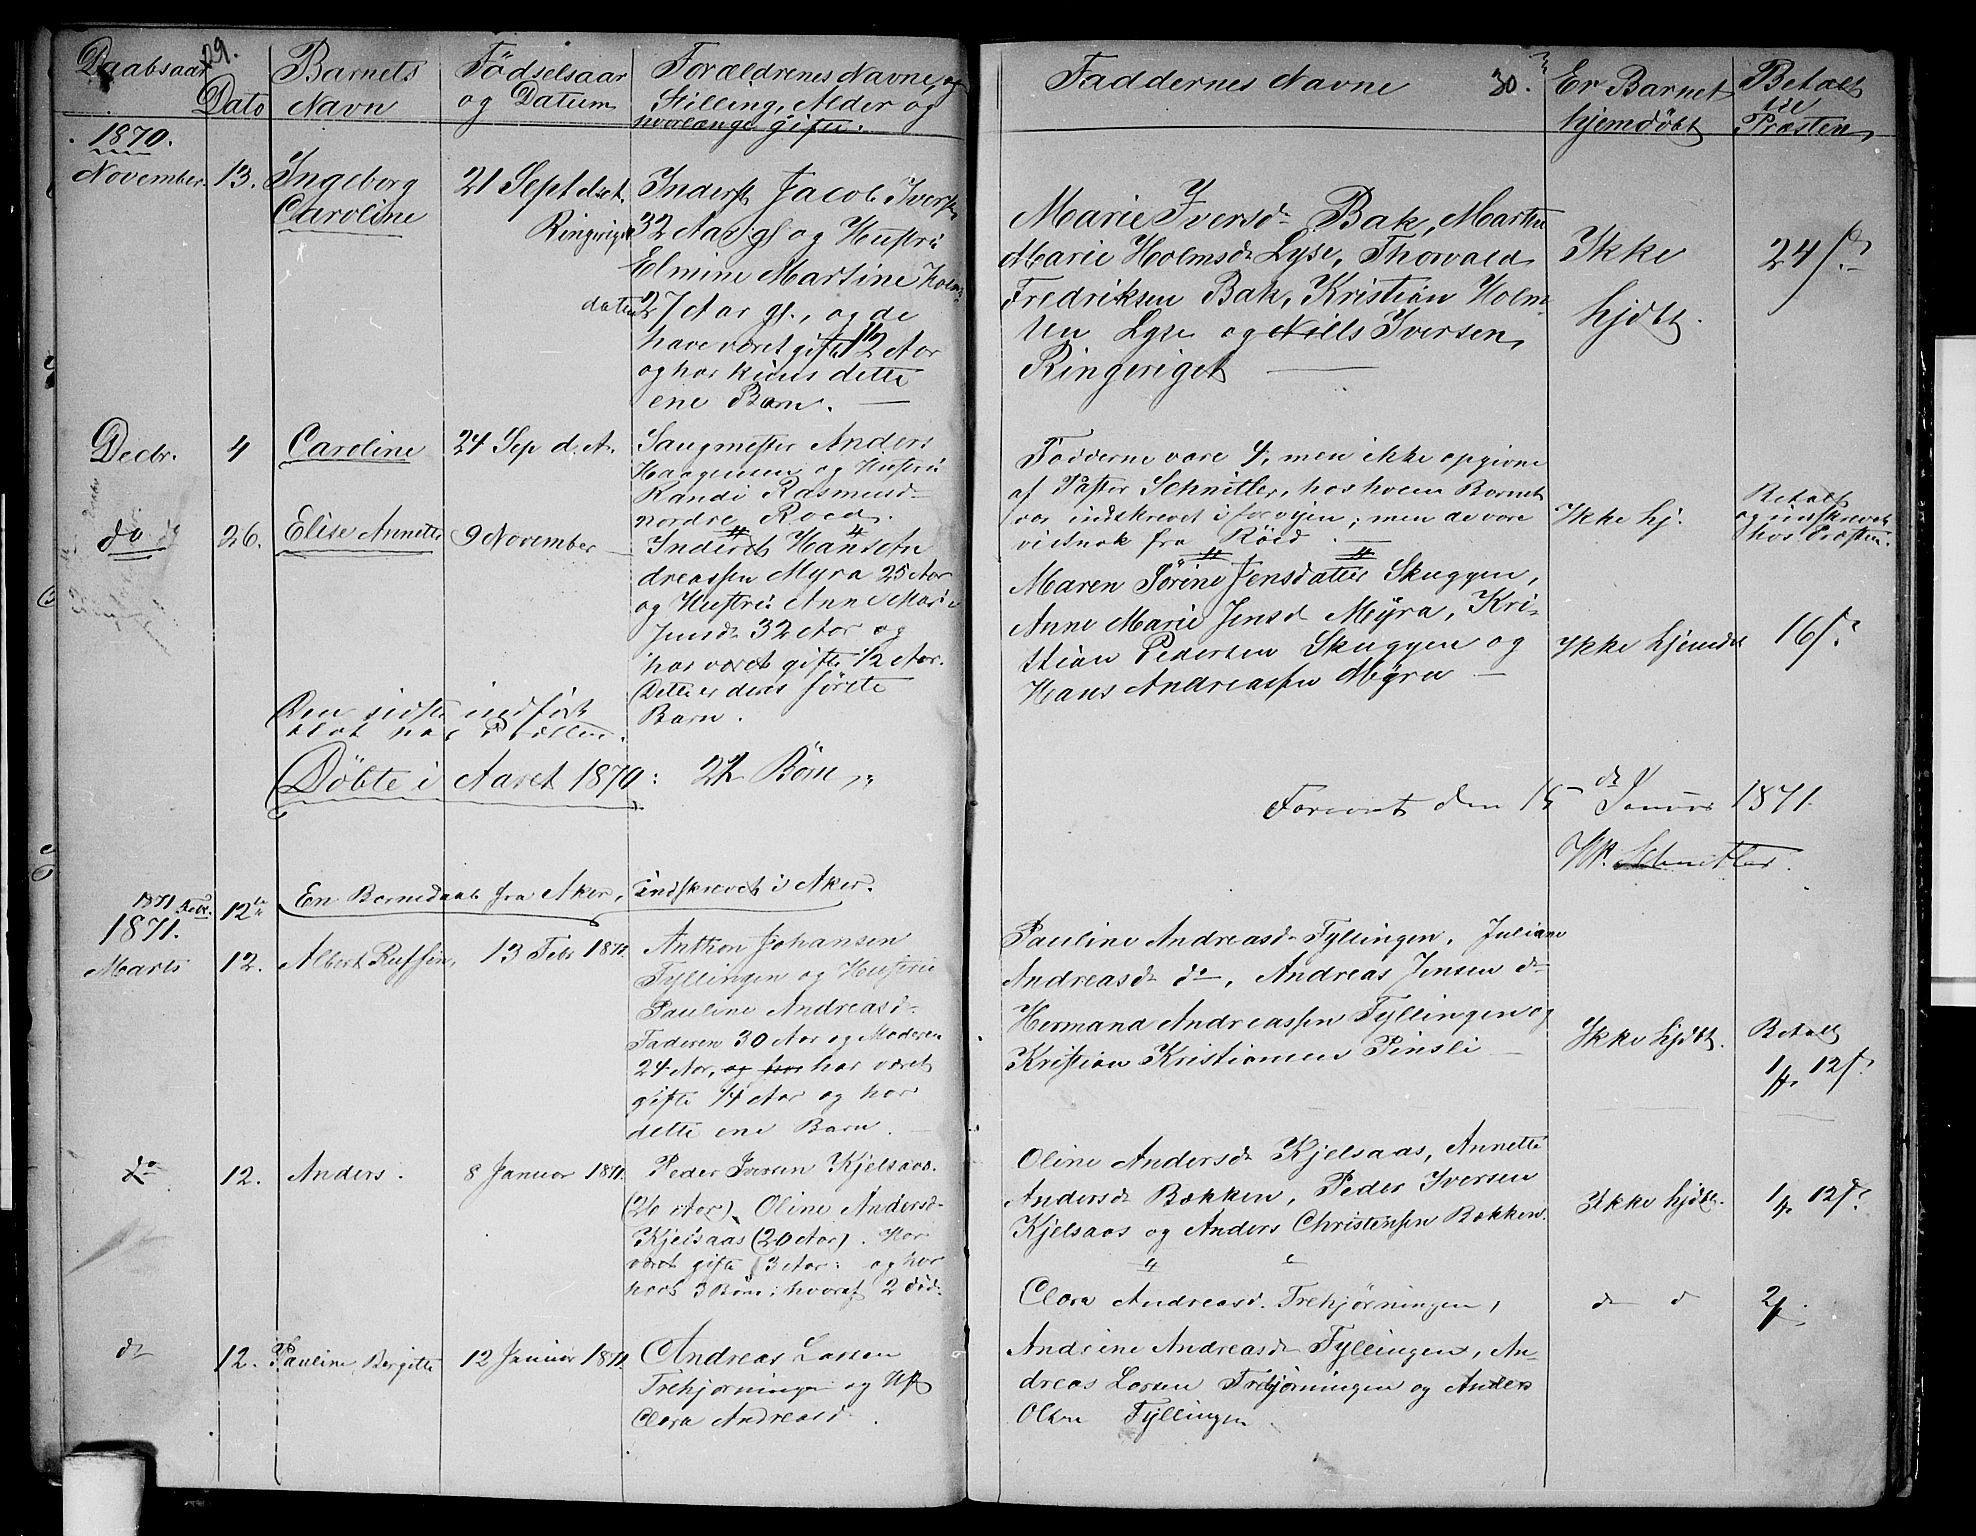 29.
Daabsaar
Dato
Barnets
Navn
Födselsaar
og Datum
Forældrenes Navne, og
Stilling, Alder og
hvorlænge gifte.
1870.
November 13. Ingeborg
Caroline
21 Sept. d. A.
Ringeriget
Inderst Jacob Iversen
32 Aar gl og Hustru
Elmine Martine Holms
datter
27 Aar gl., og de
have været gifte 1/2 Aar
og har kuns dette
ene Barn.
Decbr. 4 Caroline 24 Sep d. A.
Saugmester Anders
Haagensen og Hustru
Randi Rasmusd
nordre Roed.
do 26. Elise Annette 9 November
Inderst Hans An
dreassen Myra 25 Aar
og Hustru Anne Marie
Jensd 32 Aar og
har været gifte 1/2 Aar.
Dette er deres förste
Barn.
Den sidste indfört
Döbte i Aaret 1870: 22 Börn
1871 Febr. 12te En Barnedaab fra Aker, indskrevet i Aker.
1871.
Marts 12. Albert Ruffin, 13 Febr 1870.
Anthon Johansen
Fyllingen og Hustru
Pauline Andreasd
Faderen 30 Aar og Moderen
24 Aar, og har har været
gifte 1/4 Aar og har
dette ene Barn.
do 12. Anders. 8 Januar 1871.
Peder Iversen Kjelsaas.
(26 Aar). Oline Andersd
Kjelsaas (20 Aar). Har
været gifte 3 Aar: og har
havt 3 Börn; hvoraf 2 död
do 12. Pauline Bergitte 12 Januar 1871.
Andreas Larsen
Trehjörningen og Hst
Clara Andreasd.
Faddernes Navne
30.
Er Barnet
hjemdöbt
Betalt
til
Præsten
Marie Iversd Bak, Marten
Marie Holmsd Lyse, Thorvald
Fredriksen Bak, Kristian Holm
sen Lyse og Nills Iversen
Ringeriget
Ikke
hjdbt.
24 s.
Fadderne vare 4, men ikke opgivne
af Pastor Schnitler, hos hvem Barnet
var indskrevet i forvejen; men de vare
vistnok fra Röed.
Ikke hj.
Betalt
og indskrevet
hos Præsten.
Maren Sörine Jensdatter Skuggen,
Anne Marie Jensd Myra, Kri-
stian Pedersen Skuggen og
Hans Andreassen Myra
Ikke hjemdbt
16 s.
Foreviist den 15 de Januar 1871.
Schnitler.
Pauline Andreasd Fyllingen, Juliane
Andreasd do, Andreas Jensen do
Hermand Andreassen Fyllingen og
Kristian Kristiansen Pinsli
Ikke hjdbt.
Betalt
12 s.
Oline Andersd Kjelsaas, Annette
Andersd Bækken, Peder Iversen
Kjelsaas og Anders Christensen Bækken.
Ikke hjdbt.
12 s.
Clara Andreasd. Trehjörningen,
Andrine Andreasd Fyllingen, An-
dreas Larsen Trehjörningen og Anders
Olsen Fyllingen.
do do